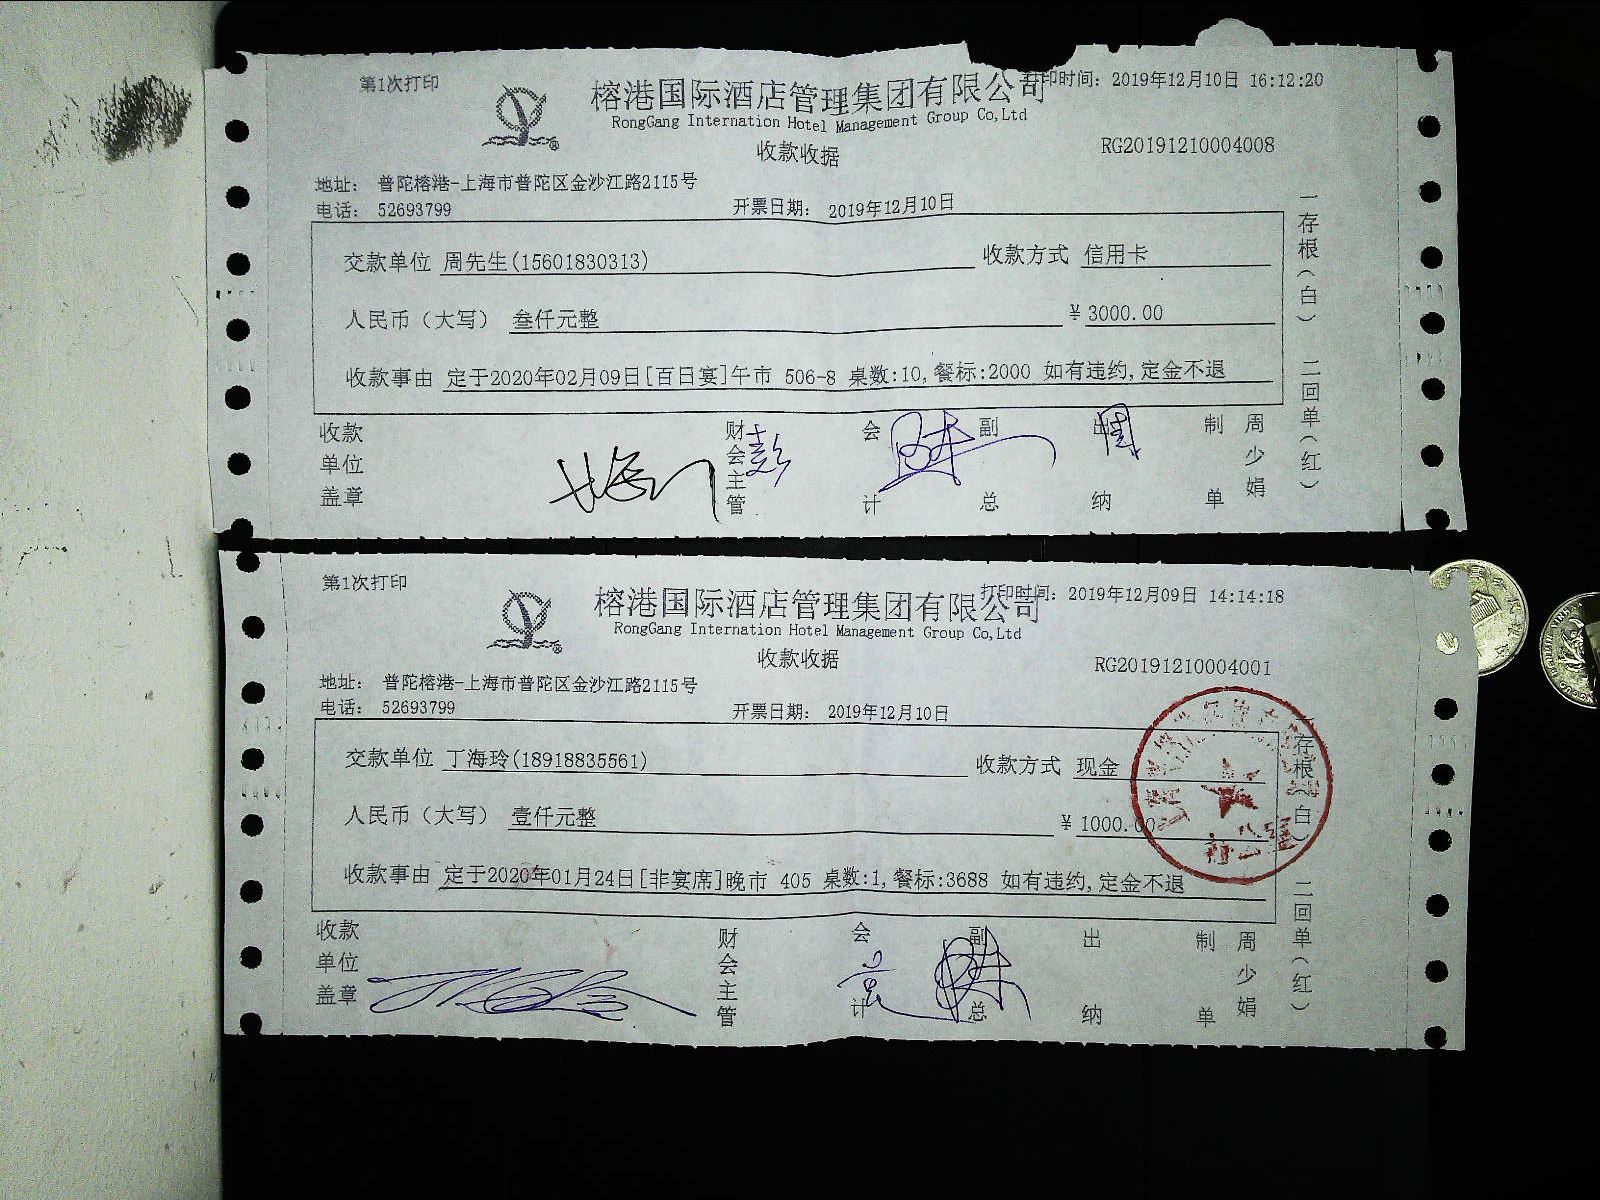 第1次打印
打印时间：2019年12月10日 16:12:20
榕港国际酒店管理集团有限公司
RongGang Internation Hotel Management Group Co,Ltd
收款收据
RG20191210004008
地址： 普陀榕港-上海市普陀区金沙江路2115号
电话： 52693799
开票日期： 2019年12月10日
交款单位 周先生(15601830313) 收款方式 信用卡
人民币（大写） 叁仟元整 ￥3000.00
收款事由 定于2020年02月09日[百日宴]午市 506-8 桌数:10,餐标:2000 如有违约,定金不退
收款单位盖章 财会主管 会计 副总 出纳 制单 周少娟
一存根（白） 二回单（红）
第1次打印
打印时间：2019年12月09日 14:14:18
榕港国际酒店管理集团有限公司
RongGang Internation Hotel Management Group Co,Ltd
收款收据
RG20191210004001
地址： 普陀榕港-上海市普陀区金沙江路2115号
电话： 52693799
开票日期： 2019年12月10日
交款单位 丁海玲(18918835561) 收款方式 现金
人民币（大写） 壹仟元整 ￥1000.00
收款事由 定于2020年01月24日[非宴席]晚市 405 桌数:1,餐标:3688 如有违约,定金不退
收款单位盖章 财会主管 会计 副总 出纳 制单 周少娟
一存根（白） 二回单（红）